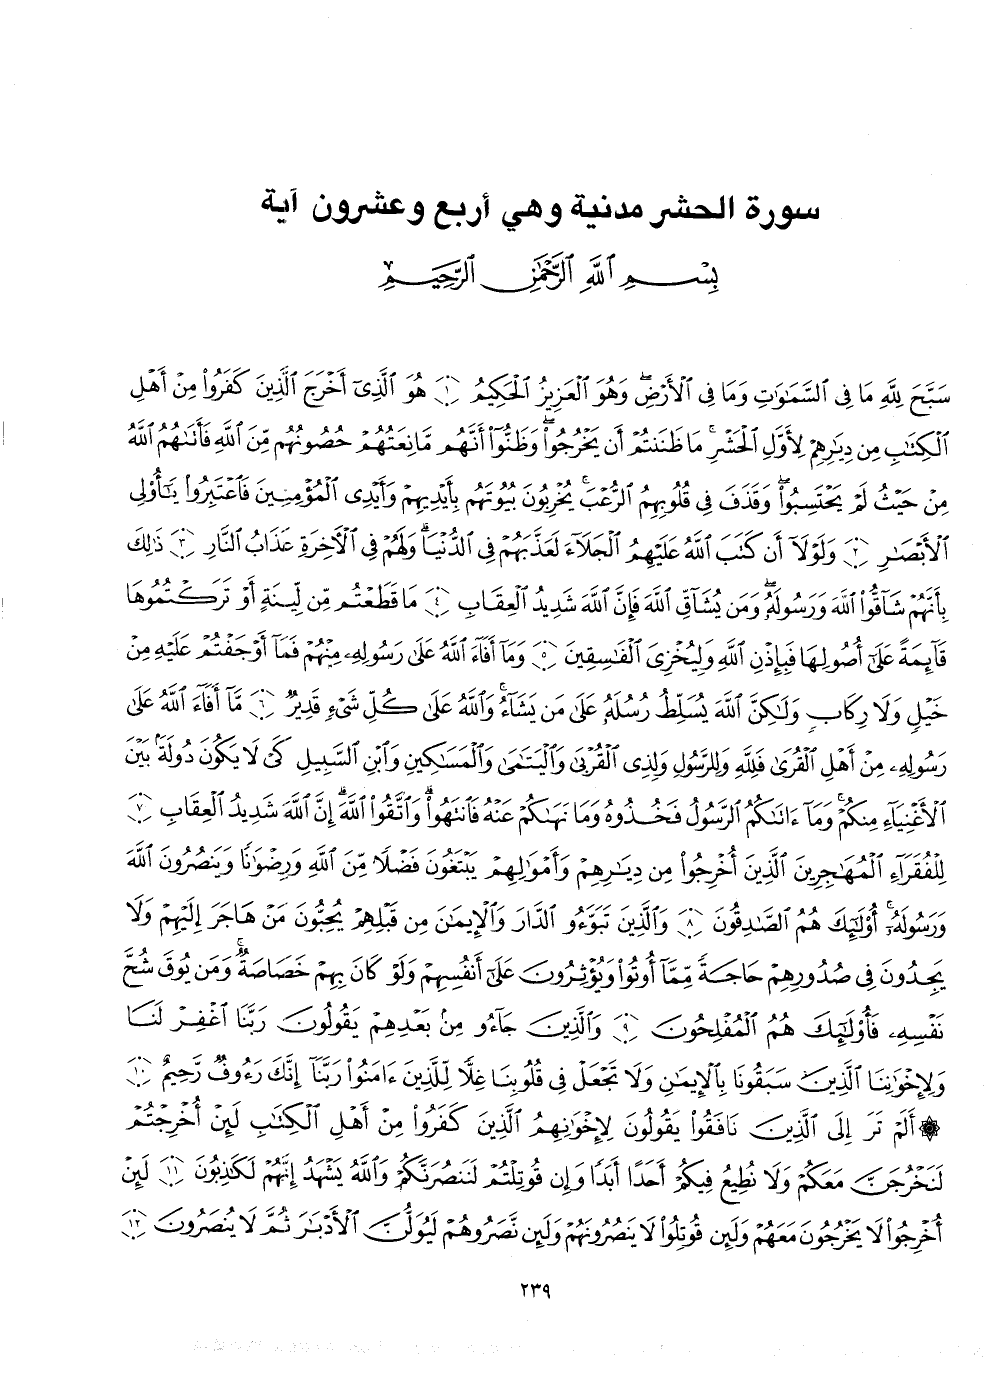 سورة الحشر مدنية وهي أربع وعشرون آية
بِسْمِ ٱللَّهِ ٱلرَّحْمَٰنِ ٱلرَّحِيمِ
سَبَّحَ لِلَّهِ مَا فِى ٱلسَّمَٰوَٰتِ وَمَا فِى ٱلْأَرْضِ ۖ وَهُوَ ٱلْعَزِيزُ ٱلْحَكِيمُ ﴿١﴾ هُوَ ٱلَّذِىٓ أَخْرَجَ ٱلَّذِينَ كَفَرُوا۟ مِنْ أَهْلِ
ٱلْكِتَٰبِ مِن دِيَٰرِهِمْ لِأَوَّلِ ٱلْحَشْرِ ۚ مَا ظَنَنتُمْ أَن يَخْرُجُوا۟ ۖ وَظَنُّوٓا۟ أَنَّهُم مَّانِعَتُهُمْ حُصُونُهُم مِّنَ ٱللَّهِ فَأَتَىٰهُمُ ٱللَّهُ
مِنْ حَيْثُ لَمْ يَحْتَسِبُوا۟ ۖ وَقَذَفَ فِى قُلُوبِهِمُ ٱلرُّعْبَ ۚ يُخْرِبُونَ بُيُوتَهُم بِأَيْدِيهِمْ وَأَيْدِى ٱلْمُؤْمِنِينَ فَٱعْتَبِرُوا۟ يَٰٓأُو۟لِى
ٱلْأَبْصَٰرِ ﴿٢﴾ وَلَوْلَآ أَن كَتَبَ ٱللَّهُ عَلَيْهِمُ ٱلْجَلَآءَ لَعَذَّبَهُمْ فِى ٱلدُّنْيَا ۖ وَلَهُمْ فِى ٱلْءَاخِرَةِ عَذَابُ ٱلنَّارِ ﴿٣﴾ ذَٰلِكَ
بِأَنَّهُمْ شَآقُّوا۟ ٱللَّهَ وَرَسُولَهُۥ ۖ وَمَن يُشَآقِّ ٱللَّهَ فَإِنَّ ٱللَّهَ شَدِيدُ ٱلْعِقَابِ ﴿٤﴾ مَا قَطَعْتُم مِّن لِّينَةٍ أَوْ تَرَكْتُمُوهَا
قَآئِمَةً عَلَىٰٓ أُصُولِهَا فَبِإِذْنِ ٱللَّهِ وَلِيُخْزِىَ ٱلْفَٰسِقِينَ ﴿٥﴾ وَمَآ أَفَآءَ ٱللَّهُ عَلَىٰ رَسُولِهِۦ مِنْهُمْ فَمَآ أَوْجَفْتُمْ عَلَيْهِ مِنْ
خَيْلٍ وَلَا رِكَابٍ وَلَٰكِنَّ ٱللَّهَ يُسَلِّطُ رُسُلَهُۥ عَلَىٰ مَن يَشَآءُ ۚ وَٱللَّهُ عَلَىٰ كُلِّ شَىْءٍ قَدِيرٌ ﴿٦﴾ مَّآ أَفَآءَ ٱللَّهُ عَلَىٰ
رَسُولِهِۦ مِنْ أَهْلِ ٱلْقُرَىٰ فَلِلَّهِ وَلِلرَّسُولِ وَلِذِى ٱلْقُرْبَىٰ وَٱلْيَتَٰمَىٰ وَٱلْمَسَٰكِينِ وَٱبْنِ ٱلسَّبِيلِ كَىْ لَا يَكُونَ دُولَةًۢ بَيْنَ
ٱلْأَغْنِيَآءِ مِنكُمْ ۚ وَمَآ ءَاتَىٰكُمُ ٱلرَّسُولُ فَخُذُوهُ وَمَا نَهَىٰكُمْ عَنْهُ فَٱنتَهُوا۟ ۚ وَٱتَّقُوا۟ ٱللَّهَ ۖ إِنَّ ٱللَّهَ شَدِيدُ ٱلْعِقَابِ ﴿٧﴾
لِلْفُقَرَآءِ ٱلْمُهَٰجِرِينَ ٱلَّذِينَ أُخْرِجُوا۟ مِن دِيَٰرِهِمْ وَأَمْوَٰلِهِمْ يَبْتَغُونَ فَضْلًا مِّنَ ٱللَّهِ وَرِضْوَٰنًا وَيَنصُرُونَ ٱللَّهَ
وَرَسُولَهُۥٓ ۚ أُو۟لَٰٓئِكَ هُمُ ٱلصَّٰدِقُونَ ﴿٨﴾ وَٱلَّذِينَ تَبَوَّءُو ٱلدَّارَ وَٱلْإِيمَٰنَ مِن قَبْلِهِمْ يُحِبُّونَ مَنْ هَاجَرَ إِلَيْهِمْ وَلَا
يَجِدُونَ فِى صُدُورِهِمْ حَاجَةً مِّمَّآ أُوتُوا۟ وَيُؤْثِرُونَ عَلَىٰٓ أَنفُسِهِمْ وَلَوْ كَانَ بِهِمْ خَصَاصَةٌ ۚ وَمَن يُوقَ شُحَّ
نَفْسِهِۦ فَأُو۟لَٰٓئِكَ هُمُ ٱلْمُفْلِحُونَ ﴿٩﴾ وَٱلَّذِينَ جَآءُو مِنۢ بَعْدِهِمْ يَقُولُونَ رَبَّنَا ٱغْفِرْ لَنَا
وَلِإِخْوَٰنِنَا ٱلَّذِينَ سَبَقُونَا بِٱلْإِيمَٰنِ وَلَا تَجْعَلْ فِى قُلُوبِنَا غِلًّا لِّلَّذِينَ ءَامَنُوا۟ رَبَّنَآ إِنَّكَ رَءُوفٌ رَّحِيمٌ ﴿١٠﴾
۞ أَلَمْ تَرَ إِلَى ٱلَّذِينَ نَافَقُوا۟ يَقُولُونَ لِإِخْوَٰنِهِمُ ٱلَّذِينَ كَفَرُوا۟ مِنْ أَهْلِ ٱلْكِتَٰبِ لَئِنْ أُخْرِجْتُمْ
لَنَخْرُجَنَّ مَعَكُمْ وَلَا نُطِيعُ فِيكُمْ أَحَدًا أَبَدًا وَإِن قُوتِلْتُمْ لَنَنصُرَنَّكُمْ وَٱللَّهُ يَشْهَدُ إِنَّهُمْ لَكَٰذِبُونَ ﴿١١﴾ لَئِنْ
أُخْرِجُوا۟ لَا يَخْرُجُونَ مَعَهُمْ وَلَئِن قُوتِلُوا۟ لَا يَنصُرُونَهُمْ وَلَئِن نَّصَرُوهُمْ لَيُوَلُّنَّ ٱلْأَدْبَٰرَ ثُمَّ لَا يُنصَرُونَ ﴿١٢﴾
٢٣٩